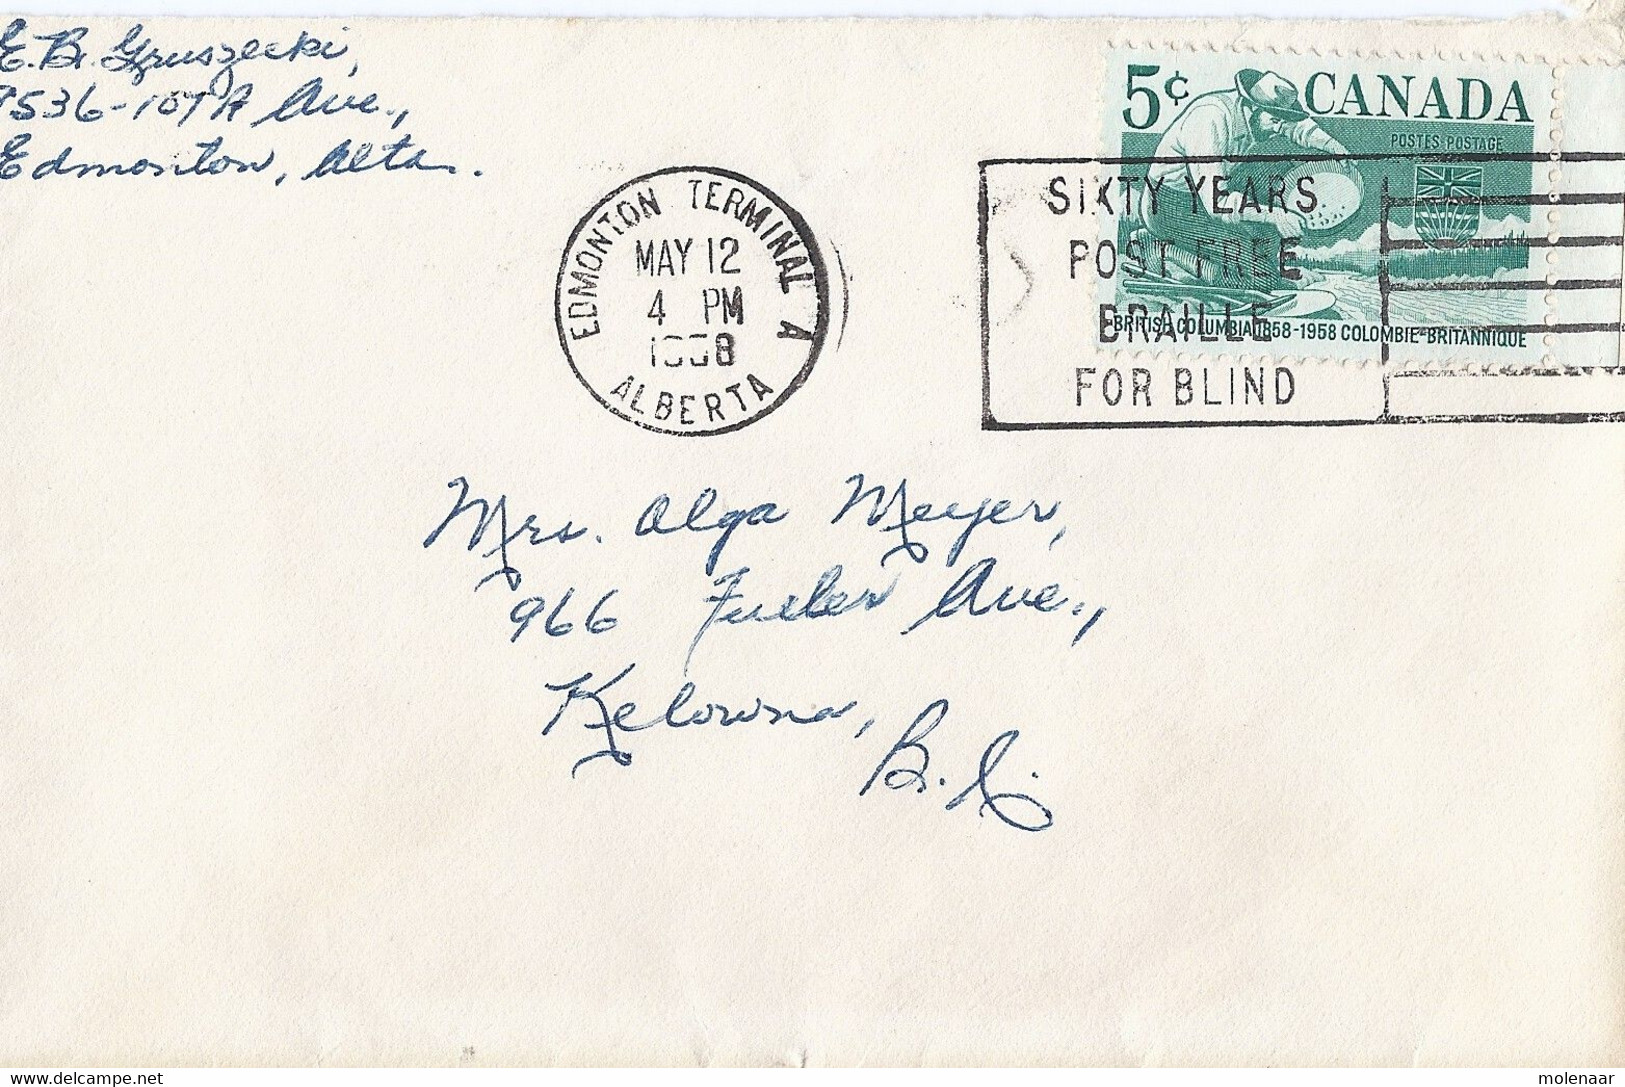 E. B. Gruszecki,
9536-107A Ave.,
Edmonton, Alta.
5¢ CANADA
POSTES POSTAGE
BRITISH COLUMBIA 1858-1958 COLOMBIE-BRITANNIQUE
EDMONTON TERMINAL A
MAY 12
4 PM
1958
ALBERTA
SIXTY YEARS
POST FREE
BRAILLE
FOR BLIND
Mrs. Olga Meyer,
966 Fuller Ave.,
Kelowna,
B.C.
molenaar